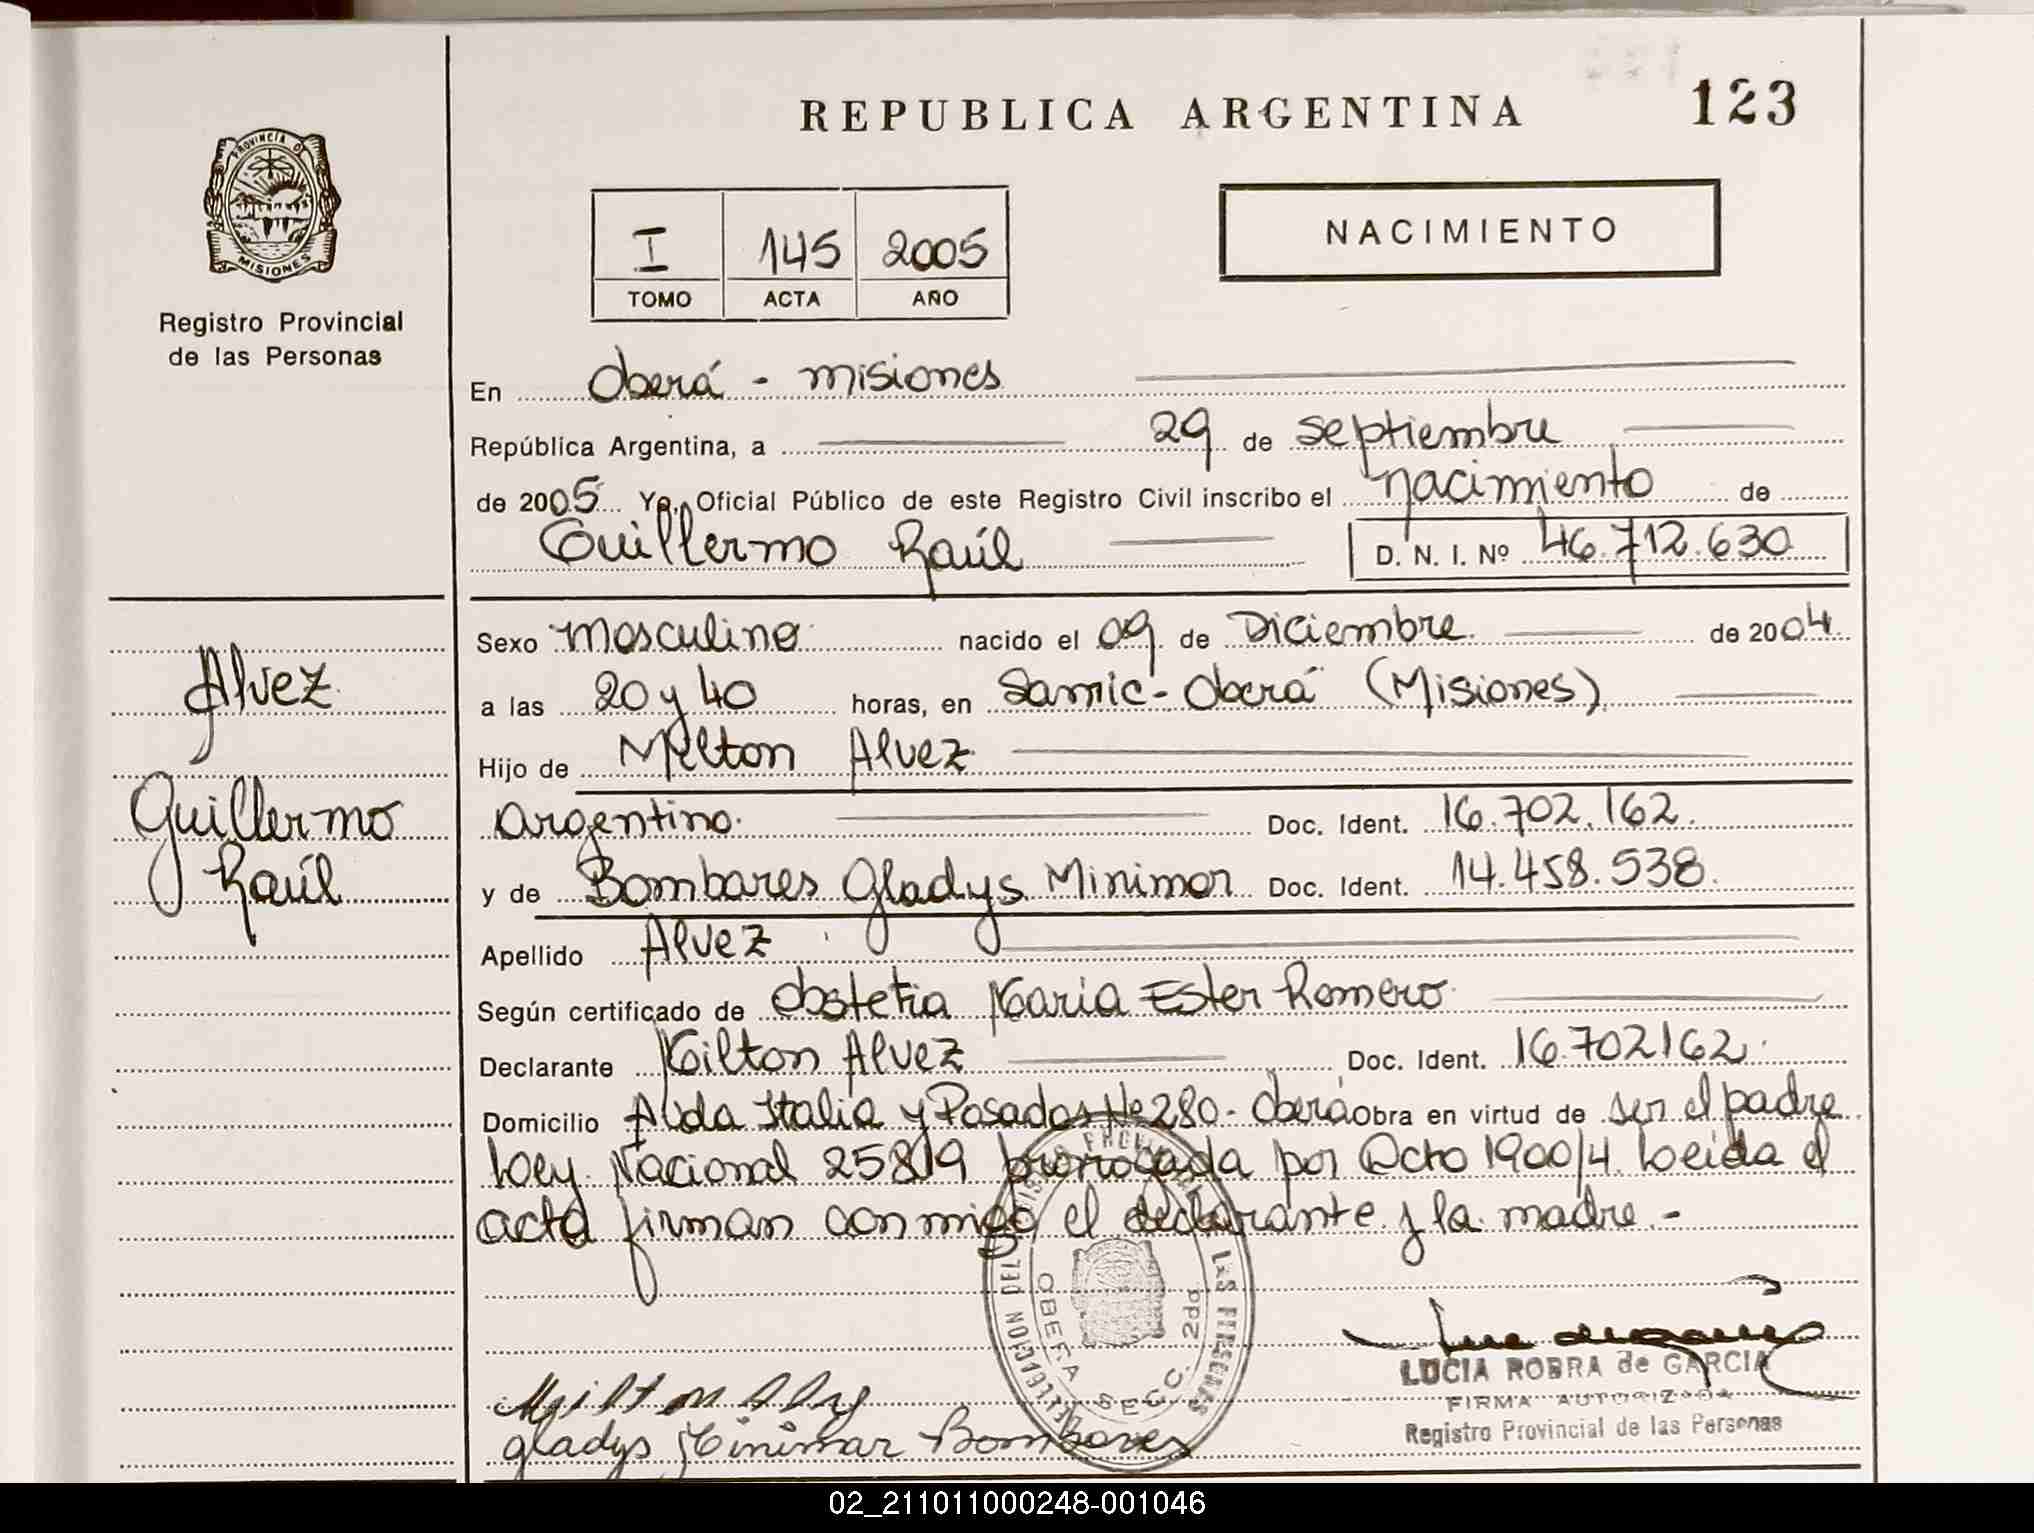 REPUBLICA ARGENTINA
123
PROVINCIA DE
MISIONES
Registro Provincial
de las Personas
I 145 2005
TOMO ACTA AÑO
NACIMIENTO
En Oberá - Misiones
República Argentina, a 29 de Septiembre
de 2005 Yo, Oficial Público de este Registro Civil inscribo el Nacimiento de
Guillermo Raúl D. N. I. Nº 46.712.630
Alvez
Guillermo
Raúl
Sexo Masculino nacido el 09 de Diciembre de 2004
a las 20 y 40 horas, en Samic - Oberá (Misiones)
Hijo de Milton Alvez
Argentino Doc. Ident. 16.702.162.
y de Bombares Gladys Minimor Doc. Ident. 14.458.538.
Apellido Alvez
Según certificado de Obstetra Maria Ester Romero
Declarante Milton Alvez Doc. Ident. 16.702162.
Domicilio Avda Italia y Posadas Nº 280 - Oberá Obra en virtud de ser el padre
Ley Nacional 25819 prorrogada por Dcto 1900/4 Leida el
acta firman conmigo el declarante y la madre.-
OBERA SECC. 2da.
LAS PERSONAS
LUCIA ROBRA de GARCIA
FIRMA AUTORIZADA
Registro Provincial de las Personas
Milton Alvez
Gladys Minimar Bombares
02_211011000248-001046